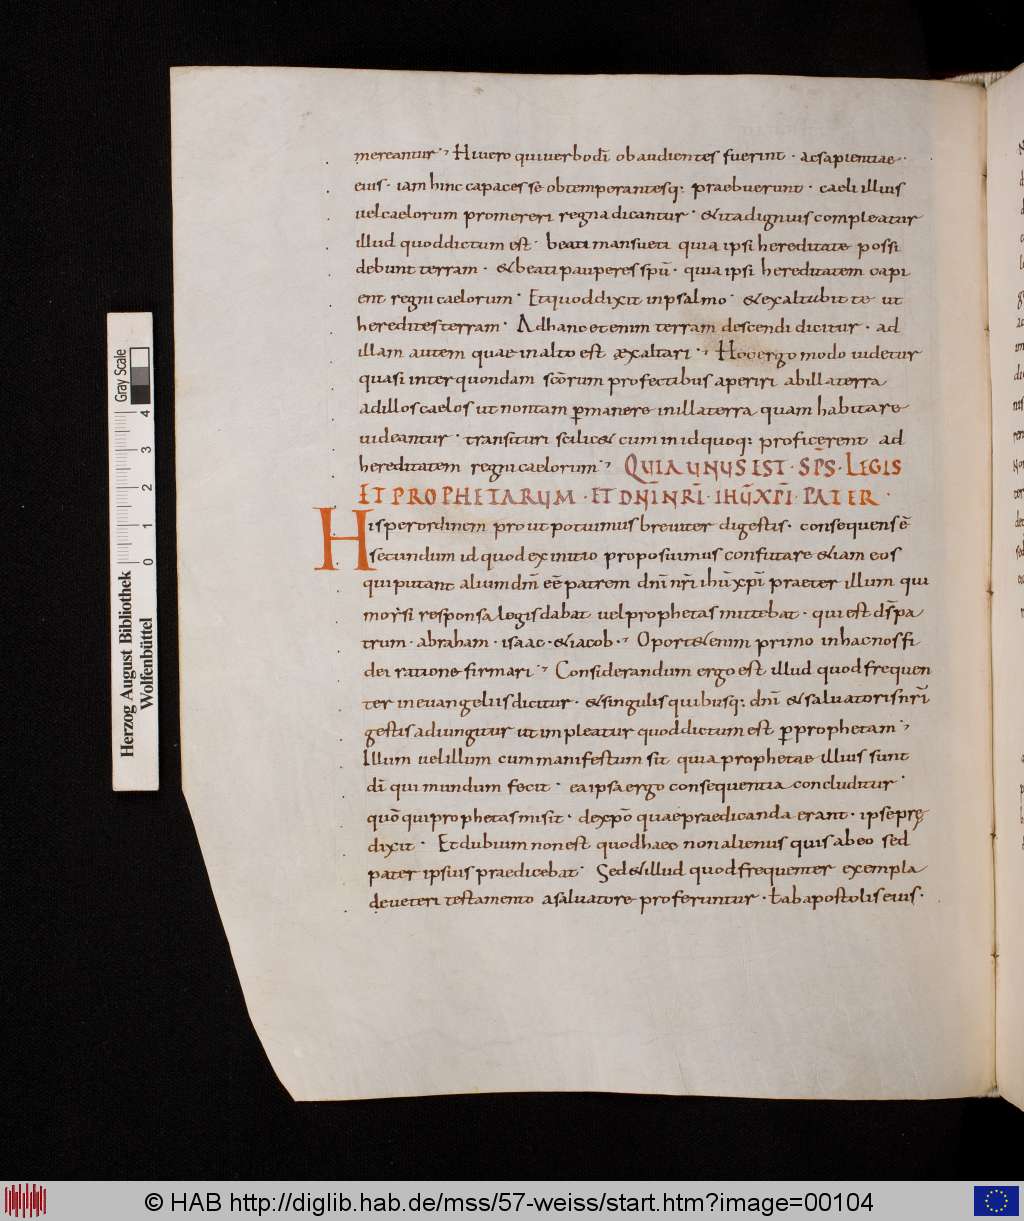 mereantur· Hi uero qui uerbo dī obaudientes fuerint· ac sapientiae
eius· iam hinc capaces se obtemperantesq; praebuerunt· caeli illius
uel caelorum promereri regna dicantur· & ita dignius compleatur
illud quod dictum est· beati mansueti quia ipsi hereditate possi
debunt terram· & beati pauperes spū· quia ipsi hereditatem capi
ent regni caelorum· Et quod dixit in psalmo· & exaltabit te ut
heredites terram· Ad hanc etenim terram descendi dicitur· ad
illam autem quae in alto est exaltari· Hoc ergo modo uidetur
quasi inter quondam scōrum profectibus aperiri ab illa terra
ad illos caelos ut non tam ꝑmanere in illa terra quam habitare
uideantur· transituri scilic& cum in id quoq; proficerent ad
hereditatem regni caelorum· QUIA UNUS EST· SP̄S· LEGIS
ET PROPHETARUM· ET DN̄I NR̄I· IHŪ XP̄I· PATER·
His per ordinem prout potuimus breuiter digestis· consequens ē
secundum id quod ex initio proposuimus confutare &iam eos
qui putant alium dm̄ eē patrem dnī nr̄i ihū xp̄i praeter illum qui
moysi responsa legis dabat uel prophetas mittebat· qui est ds̄ pa
trum· abraham· isaac· & iacob· Oport& enim primo in hac nos fi
dei ratione firmari· Considerandum ergo est illud quod frequen
ter in euangeliis dicitur· & singulis quibusq; dnī & saluatoris nr̄i
gestis adiungitur ut impleatur quod dictum est ꝑ prophetam·
Illum uel illum cum manifestum sit quia prophetae illius sunt
dī qui mundum fecit· ea ipsa ergo consequentia concluditur·
quō qui prophetas misit· de xp̄o quae praedicanda erant· ipse prę
dixit· Et dubium non est quod haec non alienus quis ab eo sed
pater ipsius praedicebat· Sed & illud quod frequenter exempla
de ueteri testamento a saluatore proferuntur· ł ab apostolis eius·
Herzog August Bibliothek
Wolfenbüttel
0 1 2 3 4
Gray Scale
© HAB http://diglib.hab.de/mss/57-weiss/start.htm?image=00104